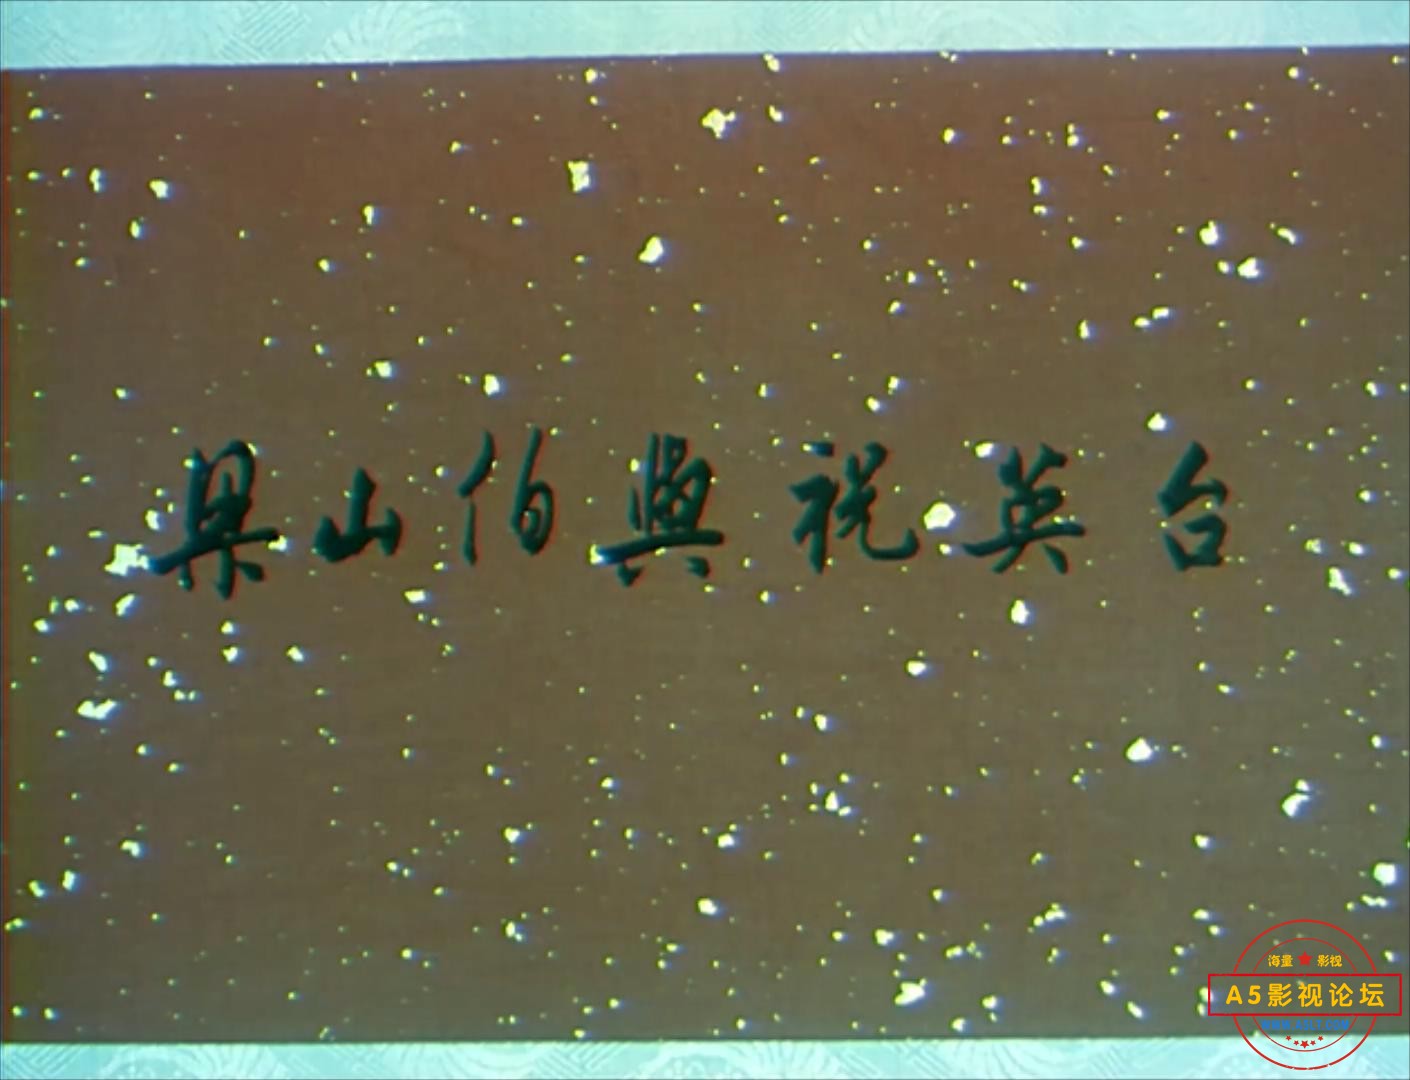 梁山伯與祝英台
海量★影视
A5影视论坛